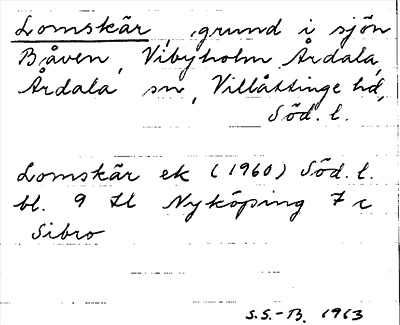 Lomskär, grund i sjön
Båven, Vibyholm Årdala,
Årdala sn, Villåttinge hd,
Söd. l.
Lomskär ek (1960) Söd. l.
bl. 9 II Nyköping 7 c
Sibro
S.S.-B. 1963